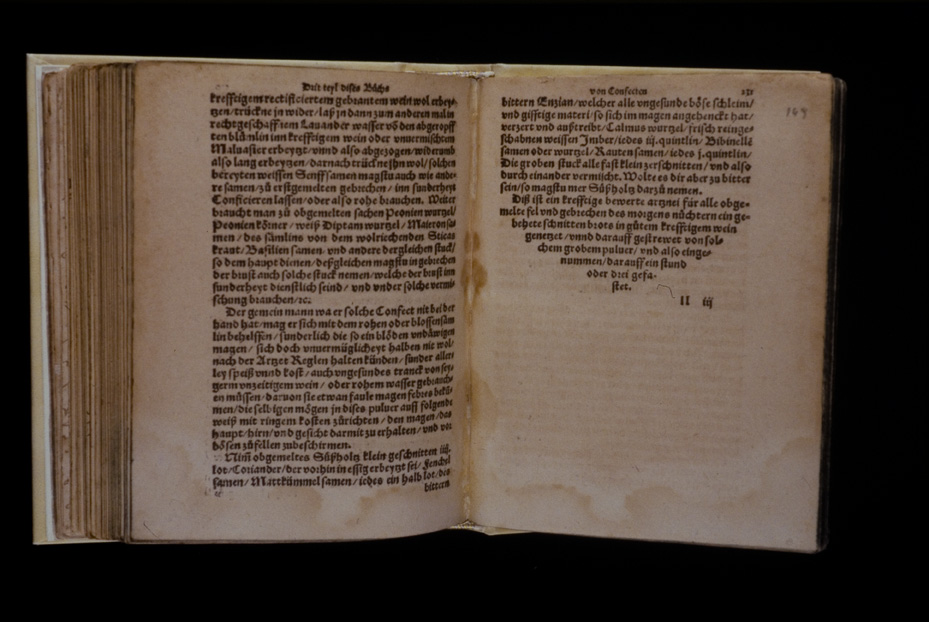 Drit teyl dises Bůchs
krefftigem rectificiertem gebrantem wein wol erbey-
tzen/trückne jn wider/laß jn dann zum anderen mal in
rechtgeschaffnem Lauander wasser võ den abgeropff
ten blümlin inn krefftigem wein oder vnuermischtem
Maluasier erbeytzt/vnnd also abgezogen/widerumb
also lang erbeytzen/darnach trückne jhn wol/solchen
bereyten weissen Senffsamen magstu auch wie ande-
re samen/zů erstgemelten gebrechen/inn sunderheyt
Conficieren lassen/oder also rohe brauchen. Weiter
braucht man zů obgemelten sachen Peonien wurtzel/
Peonien körner/weiß Diptam wurtzel/Maioron sa-
men/des sämlins von dem wolriechenden Sticas
kraut/Basilien samen/vnd andere dergleichen stuck/
so dem haupt dienen/deßgleichen magstu in gebrechen
der brust auch solche stuck nemen/welche der brust inn
sunderheyt dienstlich seind/vnd vnder solche vermi-
schung brauchen/ꝛc.
Der gemein mann wa er solche Confect nit bei der
hand hat/mag er sich mit dem rohen oder blossen säm
lin behelffen/sunderlich die so ein blöden vndäwigen
magen/sich doch vnuermüglicheyt halben nit wol
nach der Artzet Reglen halten künden/sunder aller
ley speiß vnnd kost/auch vngesundes tranck von sey-
germ vnzeitigem wein/oder rohem wasser gebrauch-
en müssen/daruon sie etwan faule magen febres bekü-
men/die selbigen mögen jn dises puluer auff folgende
weiß mit ringem kosten zůrichten/den magen/das
haupt/hirn/vnd gesicht darmit zu erhalten/vnd vor
bösen zůfellen zubeschirmen.
Nim̃ obgemeltes Süßholtz klein geschnitten iiij.
lot/Coriander/der vorhin in essig erbeytzt sei/Fenchel
samen/Mattkümmel samen/iedes ein halb lot/des
bittern
von Confecten 231
149
bittern Entzian/welcher alle vngesunde böse schleim/
vnd gifftige materi/so sich im magen angehenckt hat/
verzert vnd außtreibt/Calmus wurtzel/frisch reinge-
schabnen weissen Imber/iedes iij.quintlin/Bibinelle
samen oder wurtzel/Rauten samen/iedes j.quintlin/
Die groben stuck alle fast klein zerschnitten/vnd also
durch einander vermischt. Wolte es dir aber zu bitter
sein/so magstu mer Süßholtz darzů nemen.
Diß ist ein krefftige bewerte artznei für alle obge-
melte fel vnd gebrechen des morgens nüchtern ein ge-
behete schnitten brots in gůtem krefftigem wein
genetzet/vnnd darauff gestrewet von sol-
chem grobem puluer/vnd also einge-
nummen/darauff ein stund
oder drei gefa-
stet.
ll iij